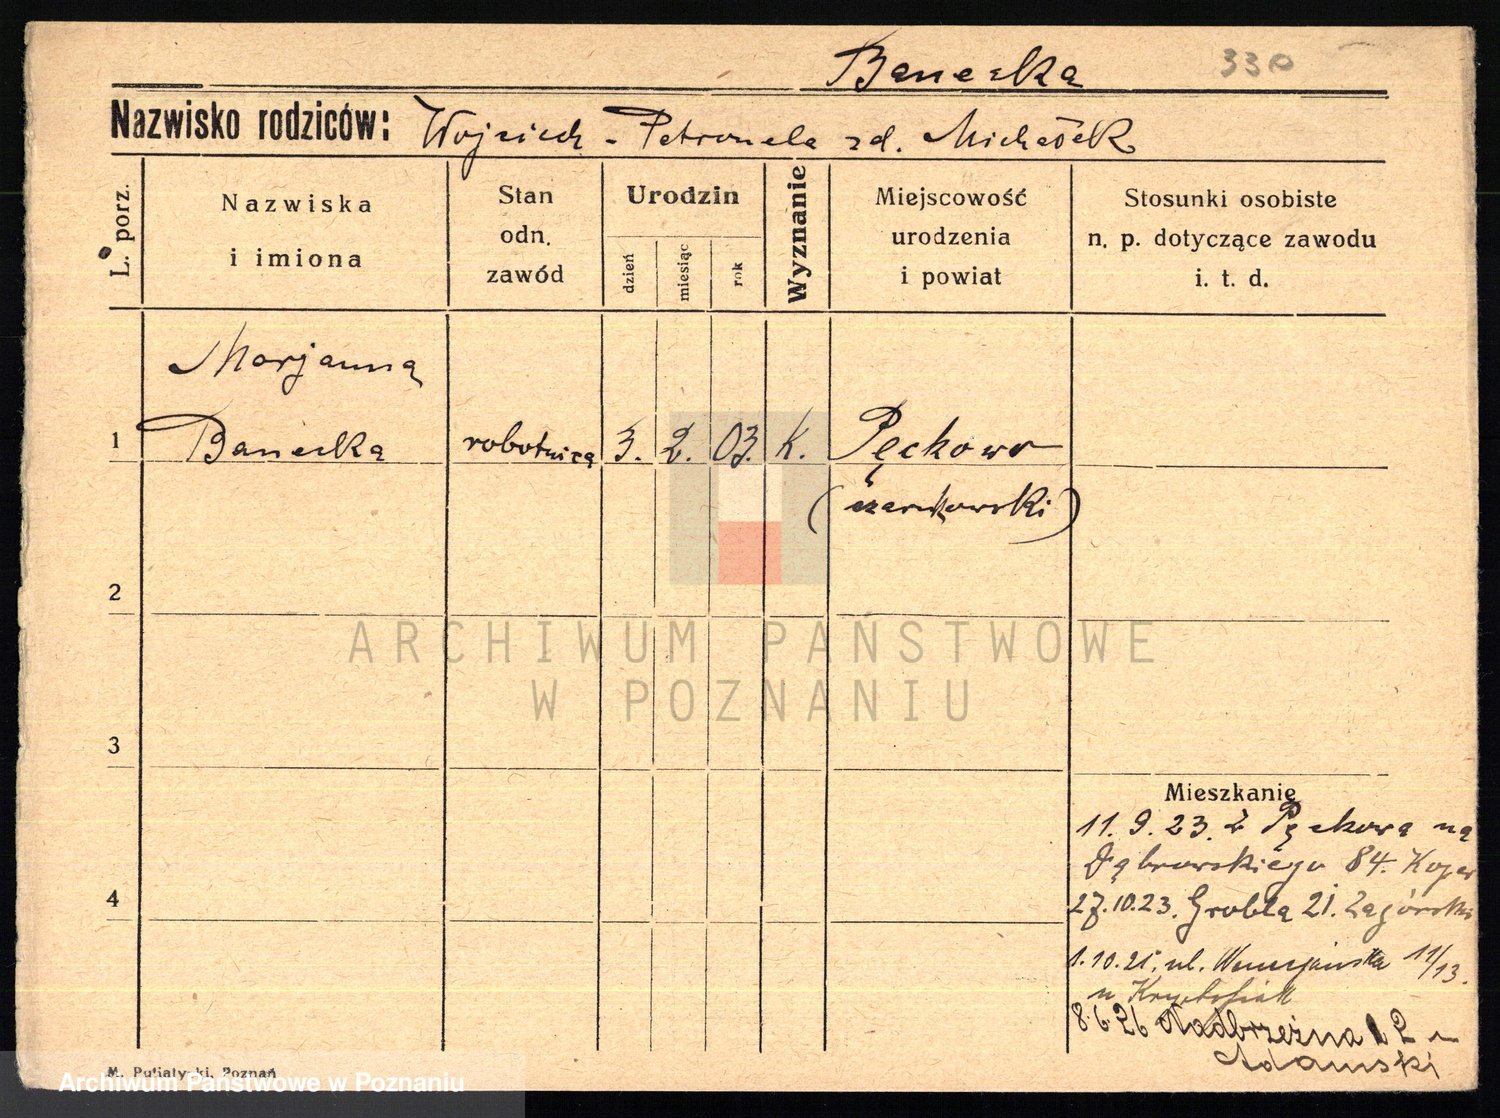 Banecka 330
Nazwisko rodziców: Wojciech - Petronela zd. Michałek
L. porz.
Nazwiska
i imiona
Stan
odn.
zawód
Urodzin
dzień
miesiąc
rok
Wyznanie
Miejscowość
urodzenia
i powiat
Stosunki osobiste
n. p. dotyczące zawodu
i. t. d.
Marjanna
1 Banecka robotnica 3. 2. 03. k. Pęckowo
(czarnkowski)
2
ARCHIWUM PAŃSTWOWE
W POZNANIU
3
Mieszkanie
11. 9. 23. z Pęckowa na
Dąbrowskiego 84.
27.10.23. Grobla 21.
4
1.10.25. ul. 11/13.
u Krysztofiak
8.6.26 Nadbrzeżna 12
Adamski
M. Putiatycki, Poznań
Archiwum Państwowe w Poznaniu